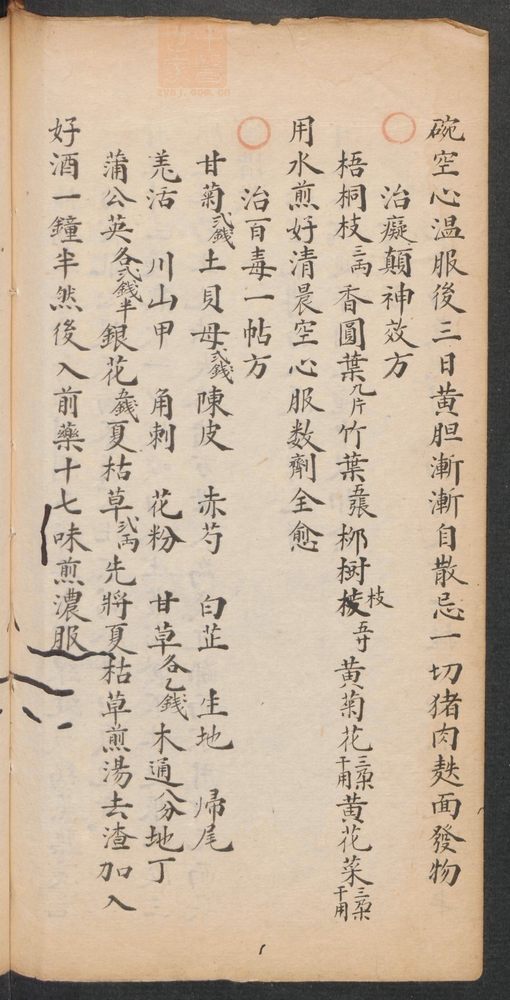 碗空心温服後三日黄胆漸漸自散忌一切猪肉麸面發物
治癡顛神效方
梧桐枝三両香圓葉九片竹葉五張栁树枝五寸黄菊花三朶干用黄花菜三朶干用
用水煎好清晨空心服数劑全愈
治百毒一帖方
甘菊弍錢土貝母弍錢陳皮 赤芍 白芷 生地 帰尾
羗活 川山甲 角刺 花粉 甘草各乙錢木通八分地丁
蒲公英各弍錢半銀花五錢夏枯草弍両先將夏枯草煎湯去渣加入
好酒一鐘半然後入前藥十七味煎濃服